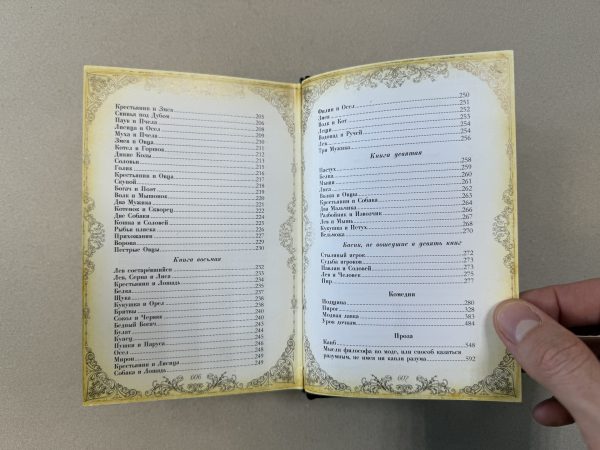 Крестьянин и Змея 205
Свинья под Дубом 205
Паук и Пчела 206
Лисица и Осел 208
Муха и Пчела 209
Змея и Овца
Котел и Горшок
Дикие Козы
Соловьи 213
Голик
Крестьянин и Овца
Скупой
Богач и Поэт
Волк и Мышонок
Два Мужика
Котенок и Скворец
Две Собаки
Кошка и Соловей
Рыбья пляска
Прихожанин
Ворона 229
Пестрые Овцы 230
Книга восьмая
Лев состаревшийся 232
Лев, Серна и Лиса
Крестьянин и Лошадь
Белка
Щука
Кукушка и Орел
Бритвы
Сокол и Червяк 240
Бедный Богач
Булат
Купец
Пушки и Паруса
Осел
Мирон
Крестьянин и Лисица 249
Собака и Лошадь 249
606
Филин и Осел 250
Змея 251
Волк и Кот 252
Лещи 253
Водопад и Ручей 254
Лев 254
Три Мужика 256
Книга девятая
Пастух 258
Белка 259
Мыши 260
Лиса 261
Волки и Овцы 262
Крестьянин и Собака 263
Два Мальчика 264
Разбойник и Извозчик 266
Лев и Мышь 267
Кукушка и Петух 268
Вельможа 270
Басни, не вошедшие в девять книг
Стыдливый игрок 272
Судьба игроков 273
Павлин и Соловей 273
Лев и Человек 275
Пир 277
Комедии
Подщипа 280
Пирог 328
Модная лавка 383
Урок дочкам 484
Проза
Каиб 548
Мысли философа по моде, или способ казаться
разумным, не имея ни капли разума 592
607